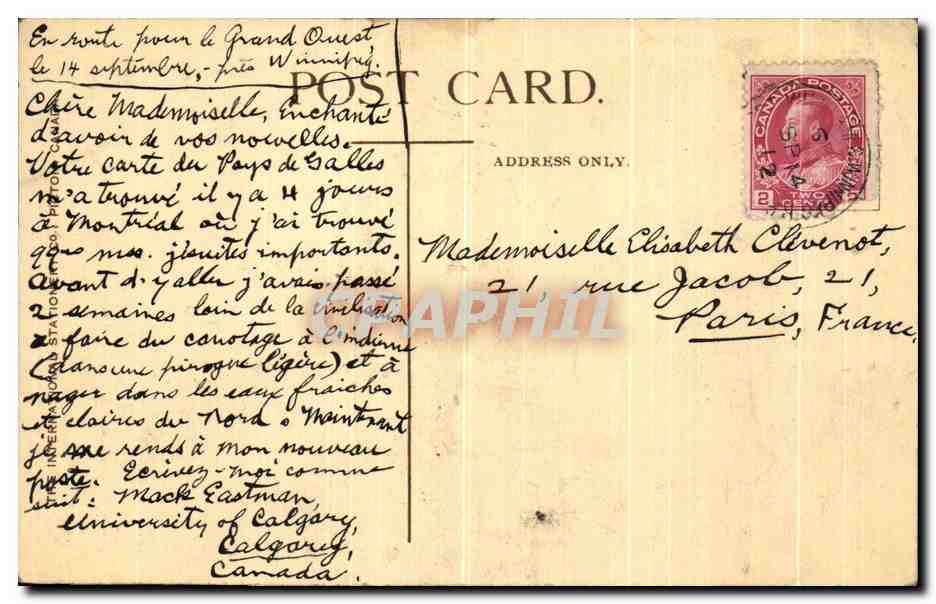 En route pour le Grand Ouest,
le 14 septembre, - près Winnipeg.
Chère Mademoiselle, Enchanté
d'avoir de vos nouvelles.
Votre carte du Pays de Galles
m'a trouvé il y a 4 jours
à Montréal où j'ai trouvé
qqes mss. jésuites importants.
Avant d'y aller j'avais passé
2 semaines loin de la civilisation
à faire du canotage à l'indienne
(dans une pirogue légère) et à
nager dans les eaux fraiches
et claires du Nord. Maintenant
je me rends à mon nouveau
poste. Ecrivez-moi comme
suit: Mack Eastman,
University of Calgary,
Calgary,
Canada.
POST CARD.
ADDRESS ONLY.
CANADA POSTAGE
2 TWO CENTS
SP 14
12
Mademoiselle Elisabeth Clévenot,
21, rue Jacob, 21,
Paris, France.
THE INTERNATIONAL STATIONERY CO., PICTON, CANADA
CPAPHIL